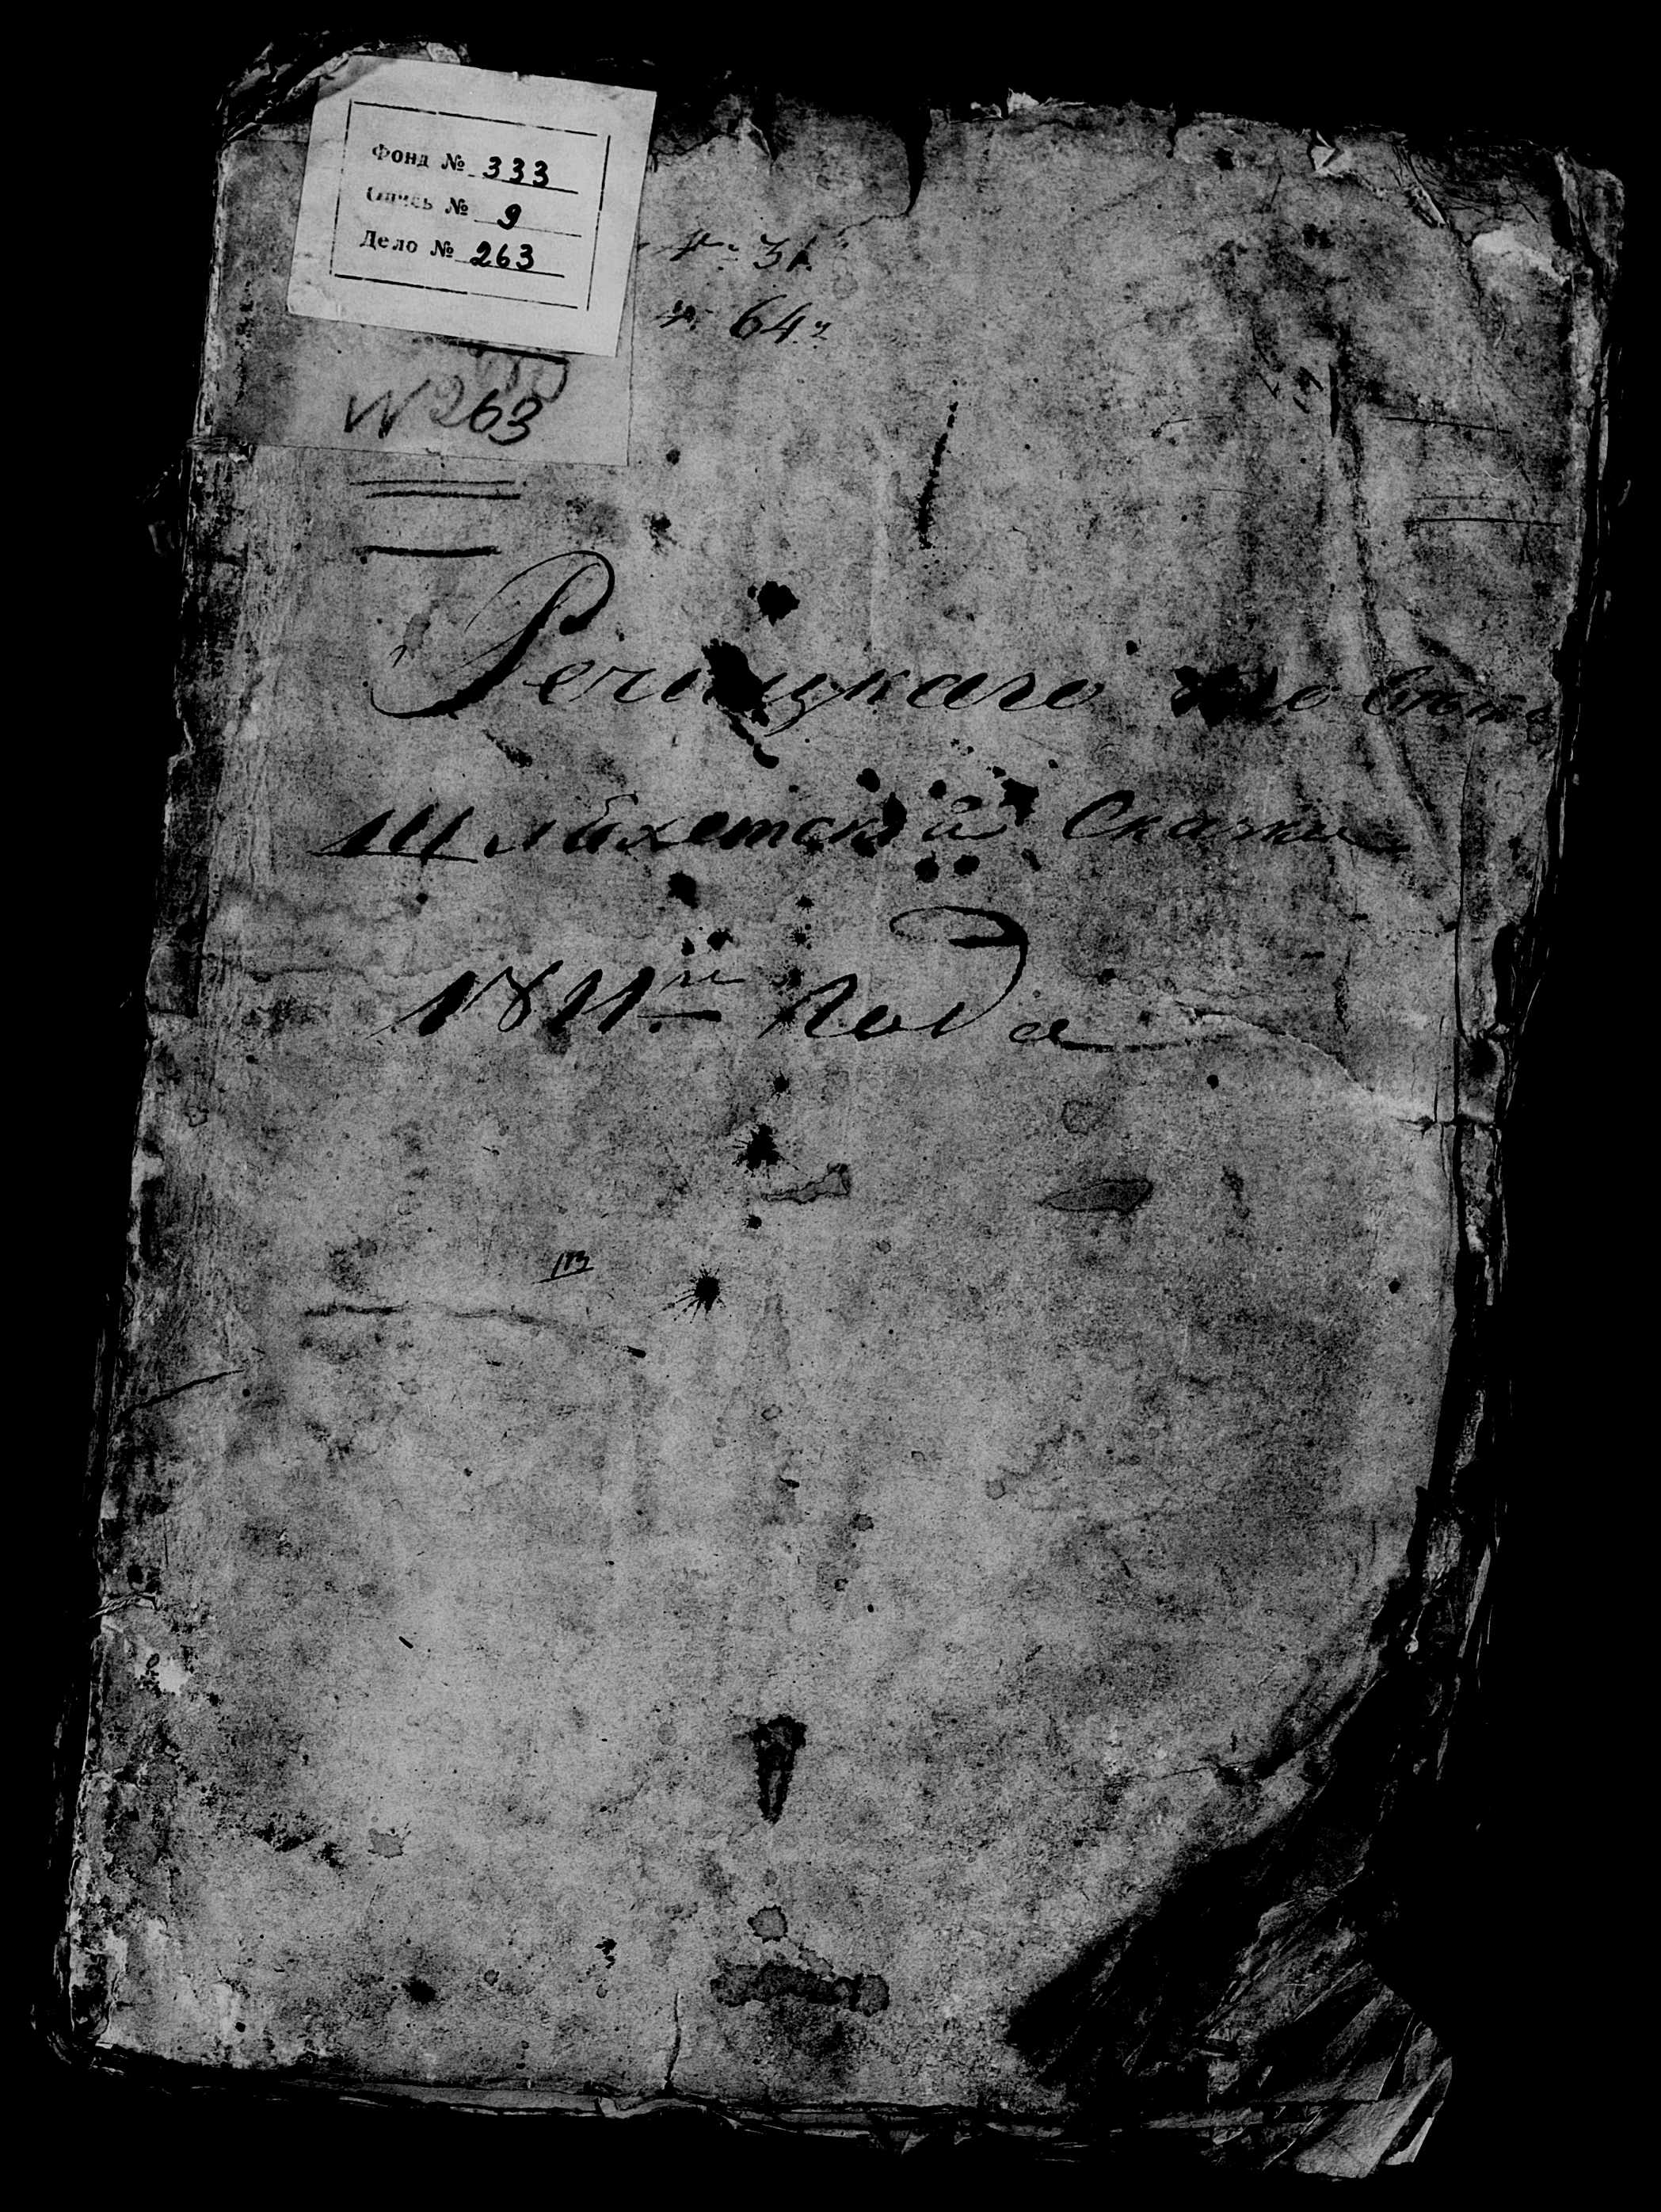 Фонд № 333
Опись № 9
Дело № 263
31.
64.
N 263
Речицкаго Повета
Шляхетския Сказки
1811го Года